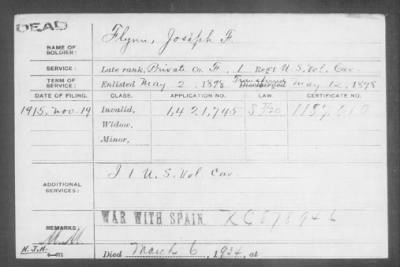 DEAD
NAME OF SOLDIER: Flynn, Joseph F.
SERVICE: Late rank, Private Co. F, 1 Reg't U.S. Vol. Cav.
TERM OF SERVICE: Enlisted May 2, 1898 May 12, 1898
DATE OF FILING. CLASS. APPLICATION NO. LAW. CERTIFICATE NO.
1915, Nov. 19 Invalid, 1,421,745
Widow,
Minor,
ADDITIONAL SERVICES: F 1 U.S. Vol Cav
WAR WITH SPAIN
REMARKS:
Died March 6, 1934, at